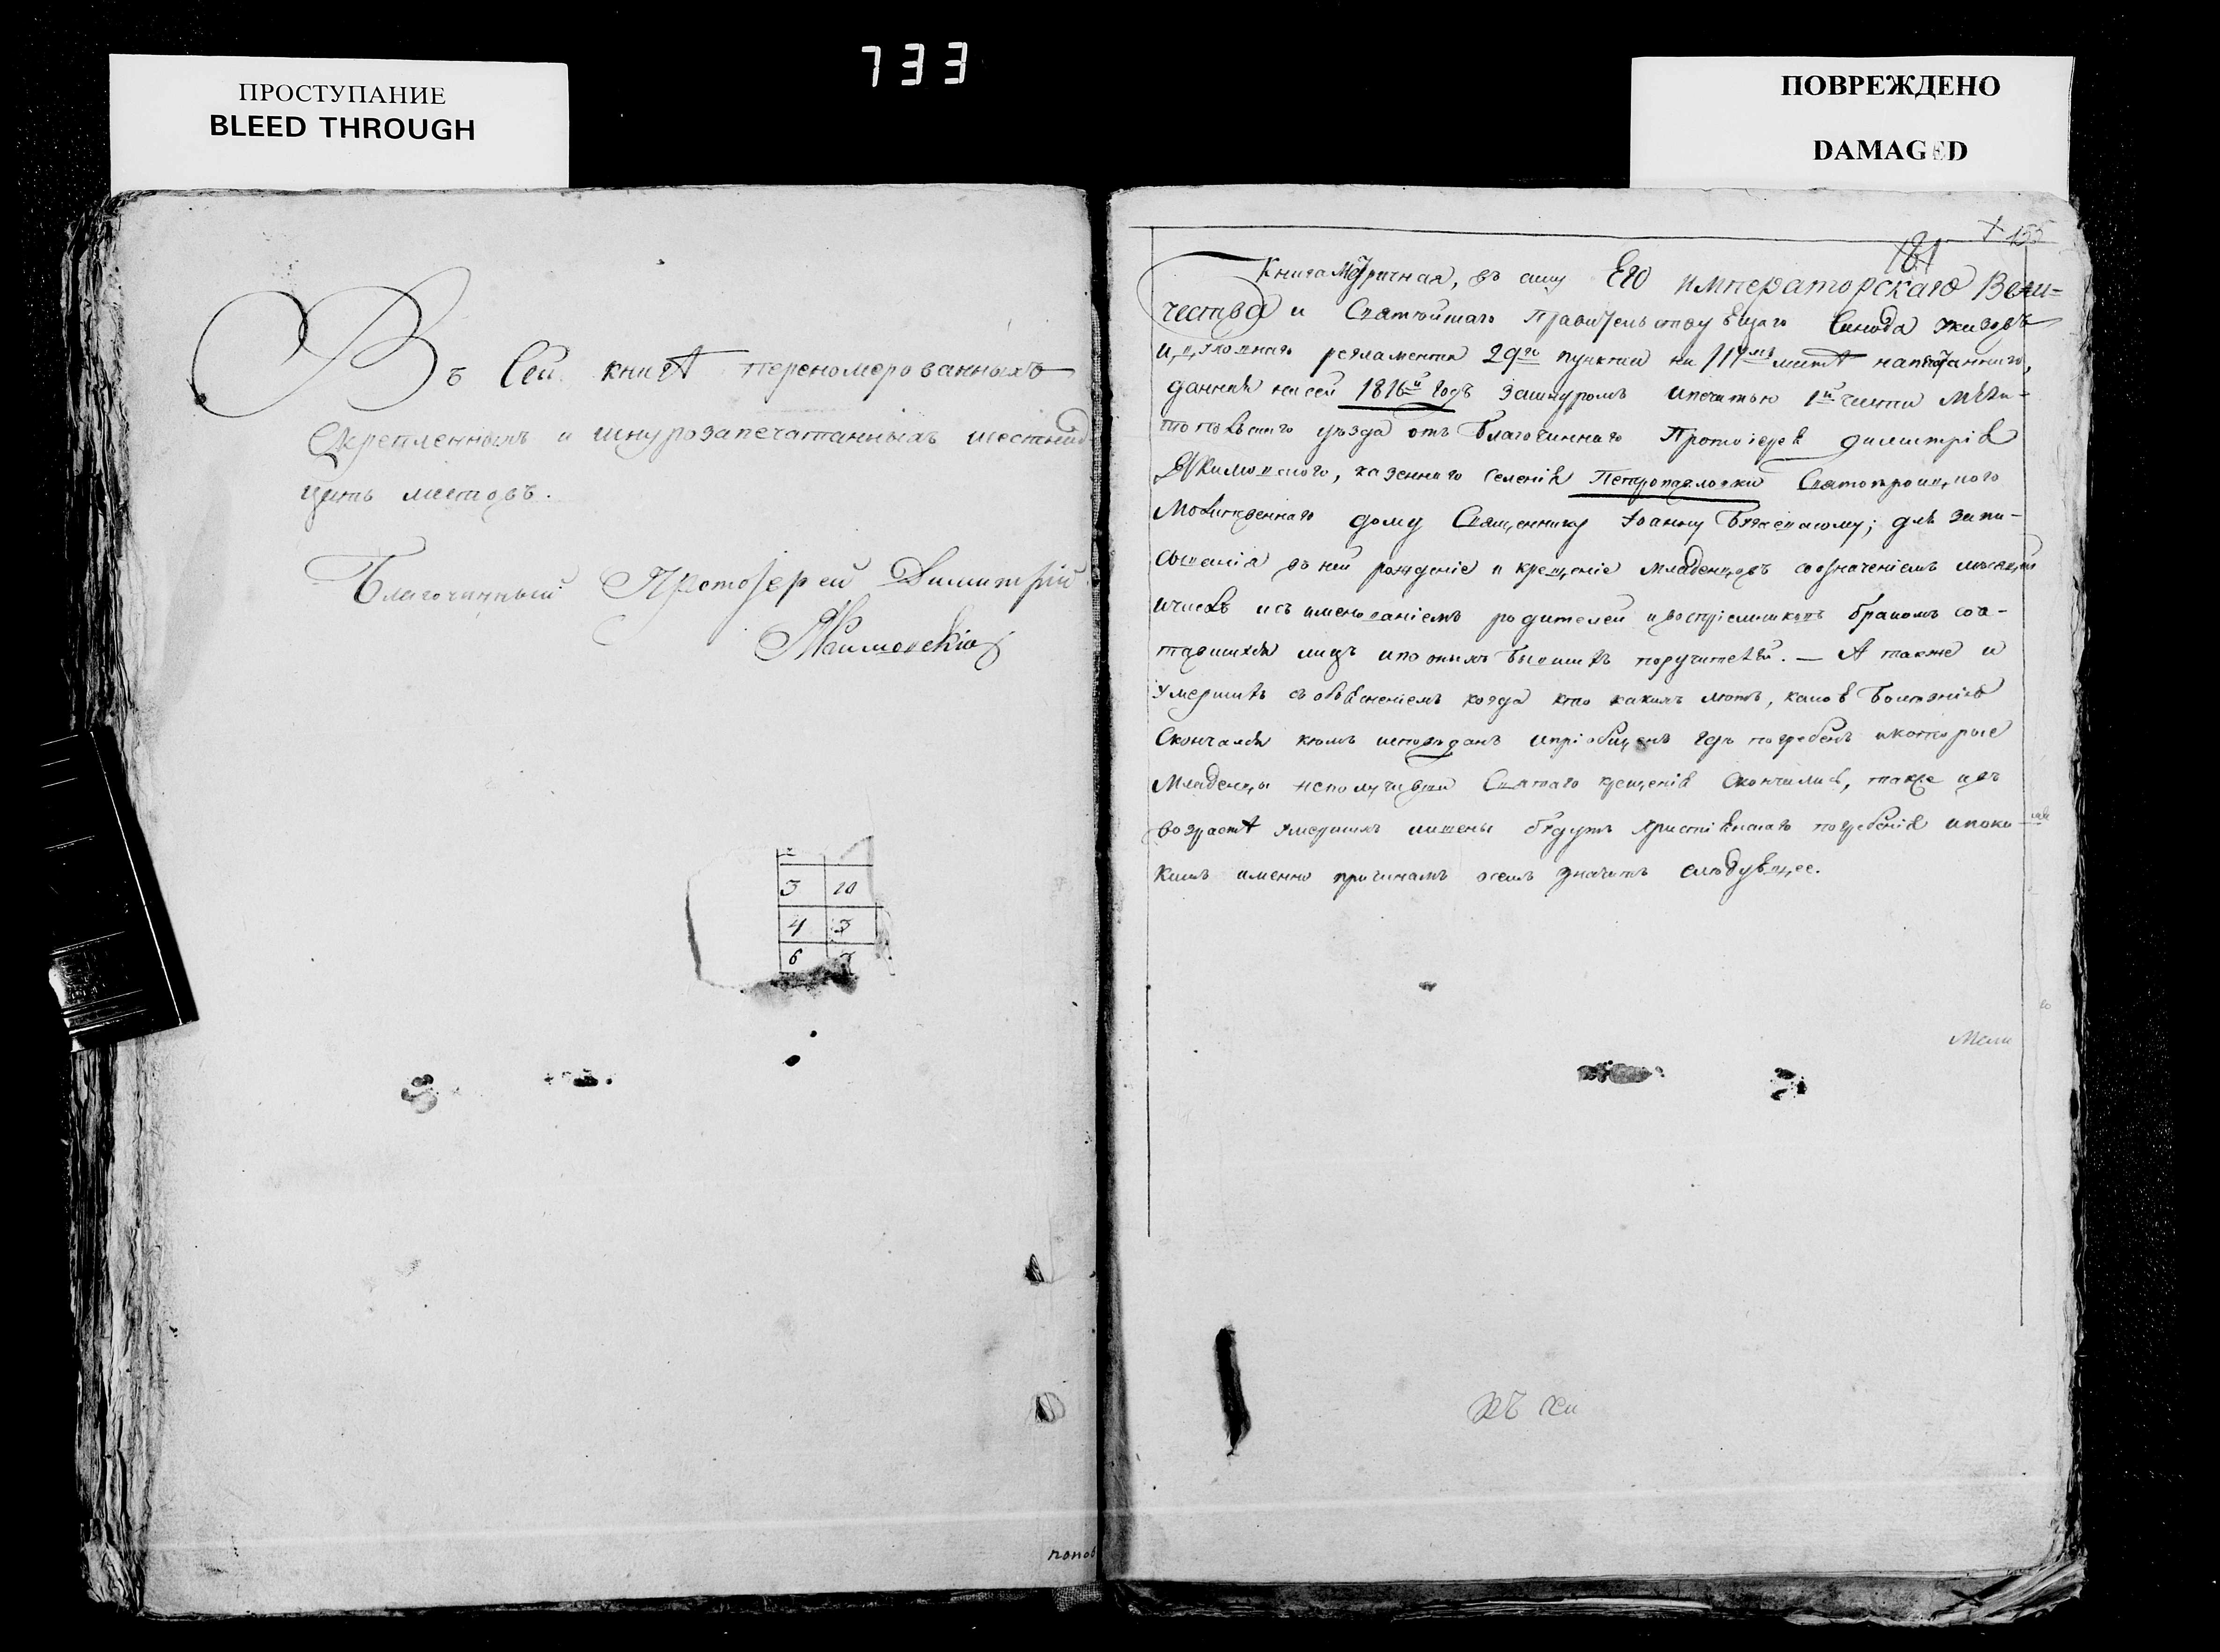 733
ПРОСТУПАНИЕ
BLEED THROUGH
ПОВРЕЖДЕНО
DAMAGED
Въ сей книгѣ переномерованныхъ
Скрепленныхъ и шнурозапечатанныхъ шестнад
цать листовъ.
Благочинный Протоіерей Димитрій
3 10
4 3
6
попов
155
181
Книга Метричная, въ силу Его императорскаго Вели=
чества и Святѣйшаго Правительствующаго Синода указовъ
и духовнаго регламента 29го пункта на 114мъ листѣ напечатаннаго,
данная на сей 1816й годъ зашнуромъ ипечатью 1й части Мели-
топольского уѣзда отъ Благочиннаго Протоіерея димитрія
казенного селенія Петропавловки Святотроицкого
Молитвенного дому Священнику Іоанну для запи-
сыванія въ ней рожденіе и крещеніе младенцовъ созначеніемъ мѣсяца
ичисла исъ именованіемъ родителей ивоспріемниковъ бракомъ соче-
тавшихся лицъ ипо онымъ бывшихъ поручителей. — А также и
умершихъ собьясненіемъ когда кто какихъ лѣтъ, какою болѣзнію
Скончался кѣмъ исповѣданъ ипріобщенъ гдѣ погребенъ икоторые
Младенцы неполучивши Святаго крещенія Скончались, также ивъ
возрастѣ умершихъ лишены будутъ Христіянскаго погребенія ипока
кимъ именно причинамъ осемъ значитъ слѣдующее.